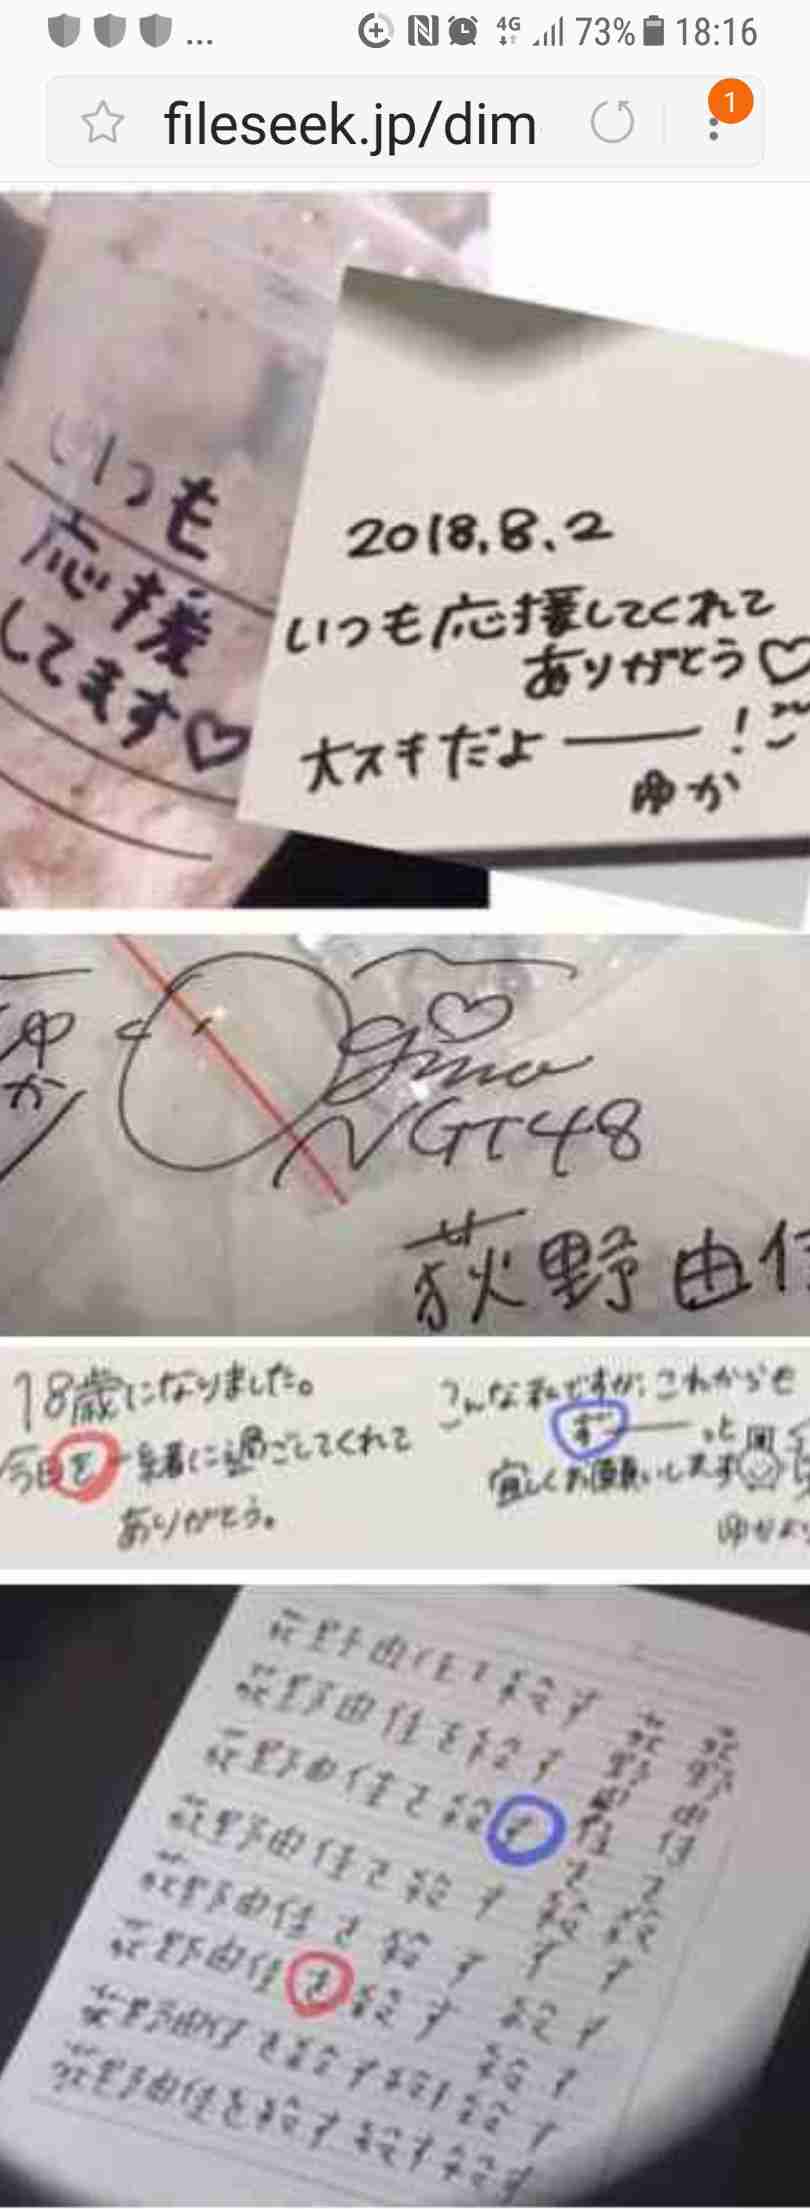 ... 4G 73% 18:16
fileseek.jp/dim
1
いつも
応援
してます♡
2018.8.2
いつも応援してくれて
ありがとう♡
大スキだよ――!
ゆか
ゆか
NGT48
荻野由佳
18歳になりました。
今日を一緒に過ごしてくれて
ありがとう。
こんな私ですが、これからも
ず――っと
宜しくお願いします
ゆかより
荻野由佳を殺す 荻 荻
荻野由佳を殺す 野 野
荻野由佳を殺す 由 由
荻野由佳を殺す 佳 佳
荻野由佳を殺す を を
荻野由佳を殺す 殺 殺
荻野由佳を殺す殺す殺す
荻野由佳を殺す殺す殺す